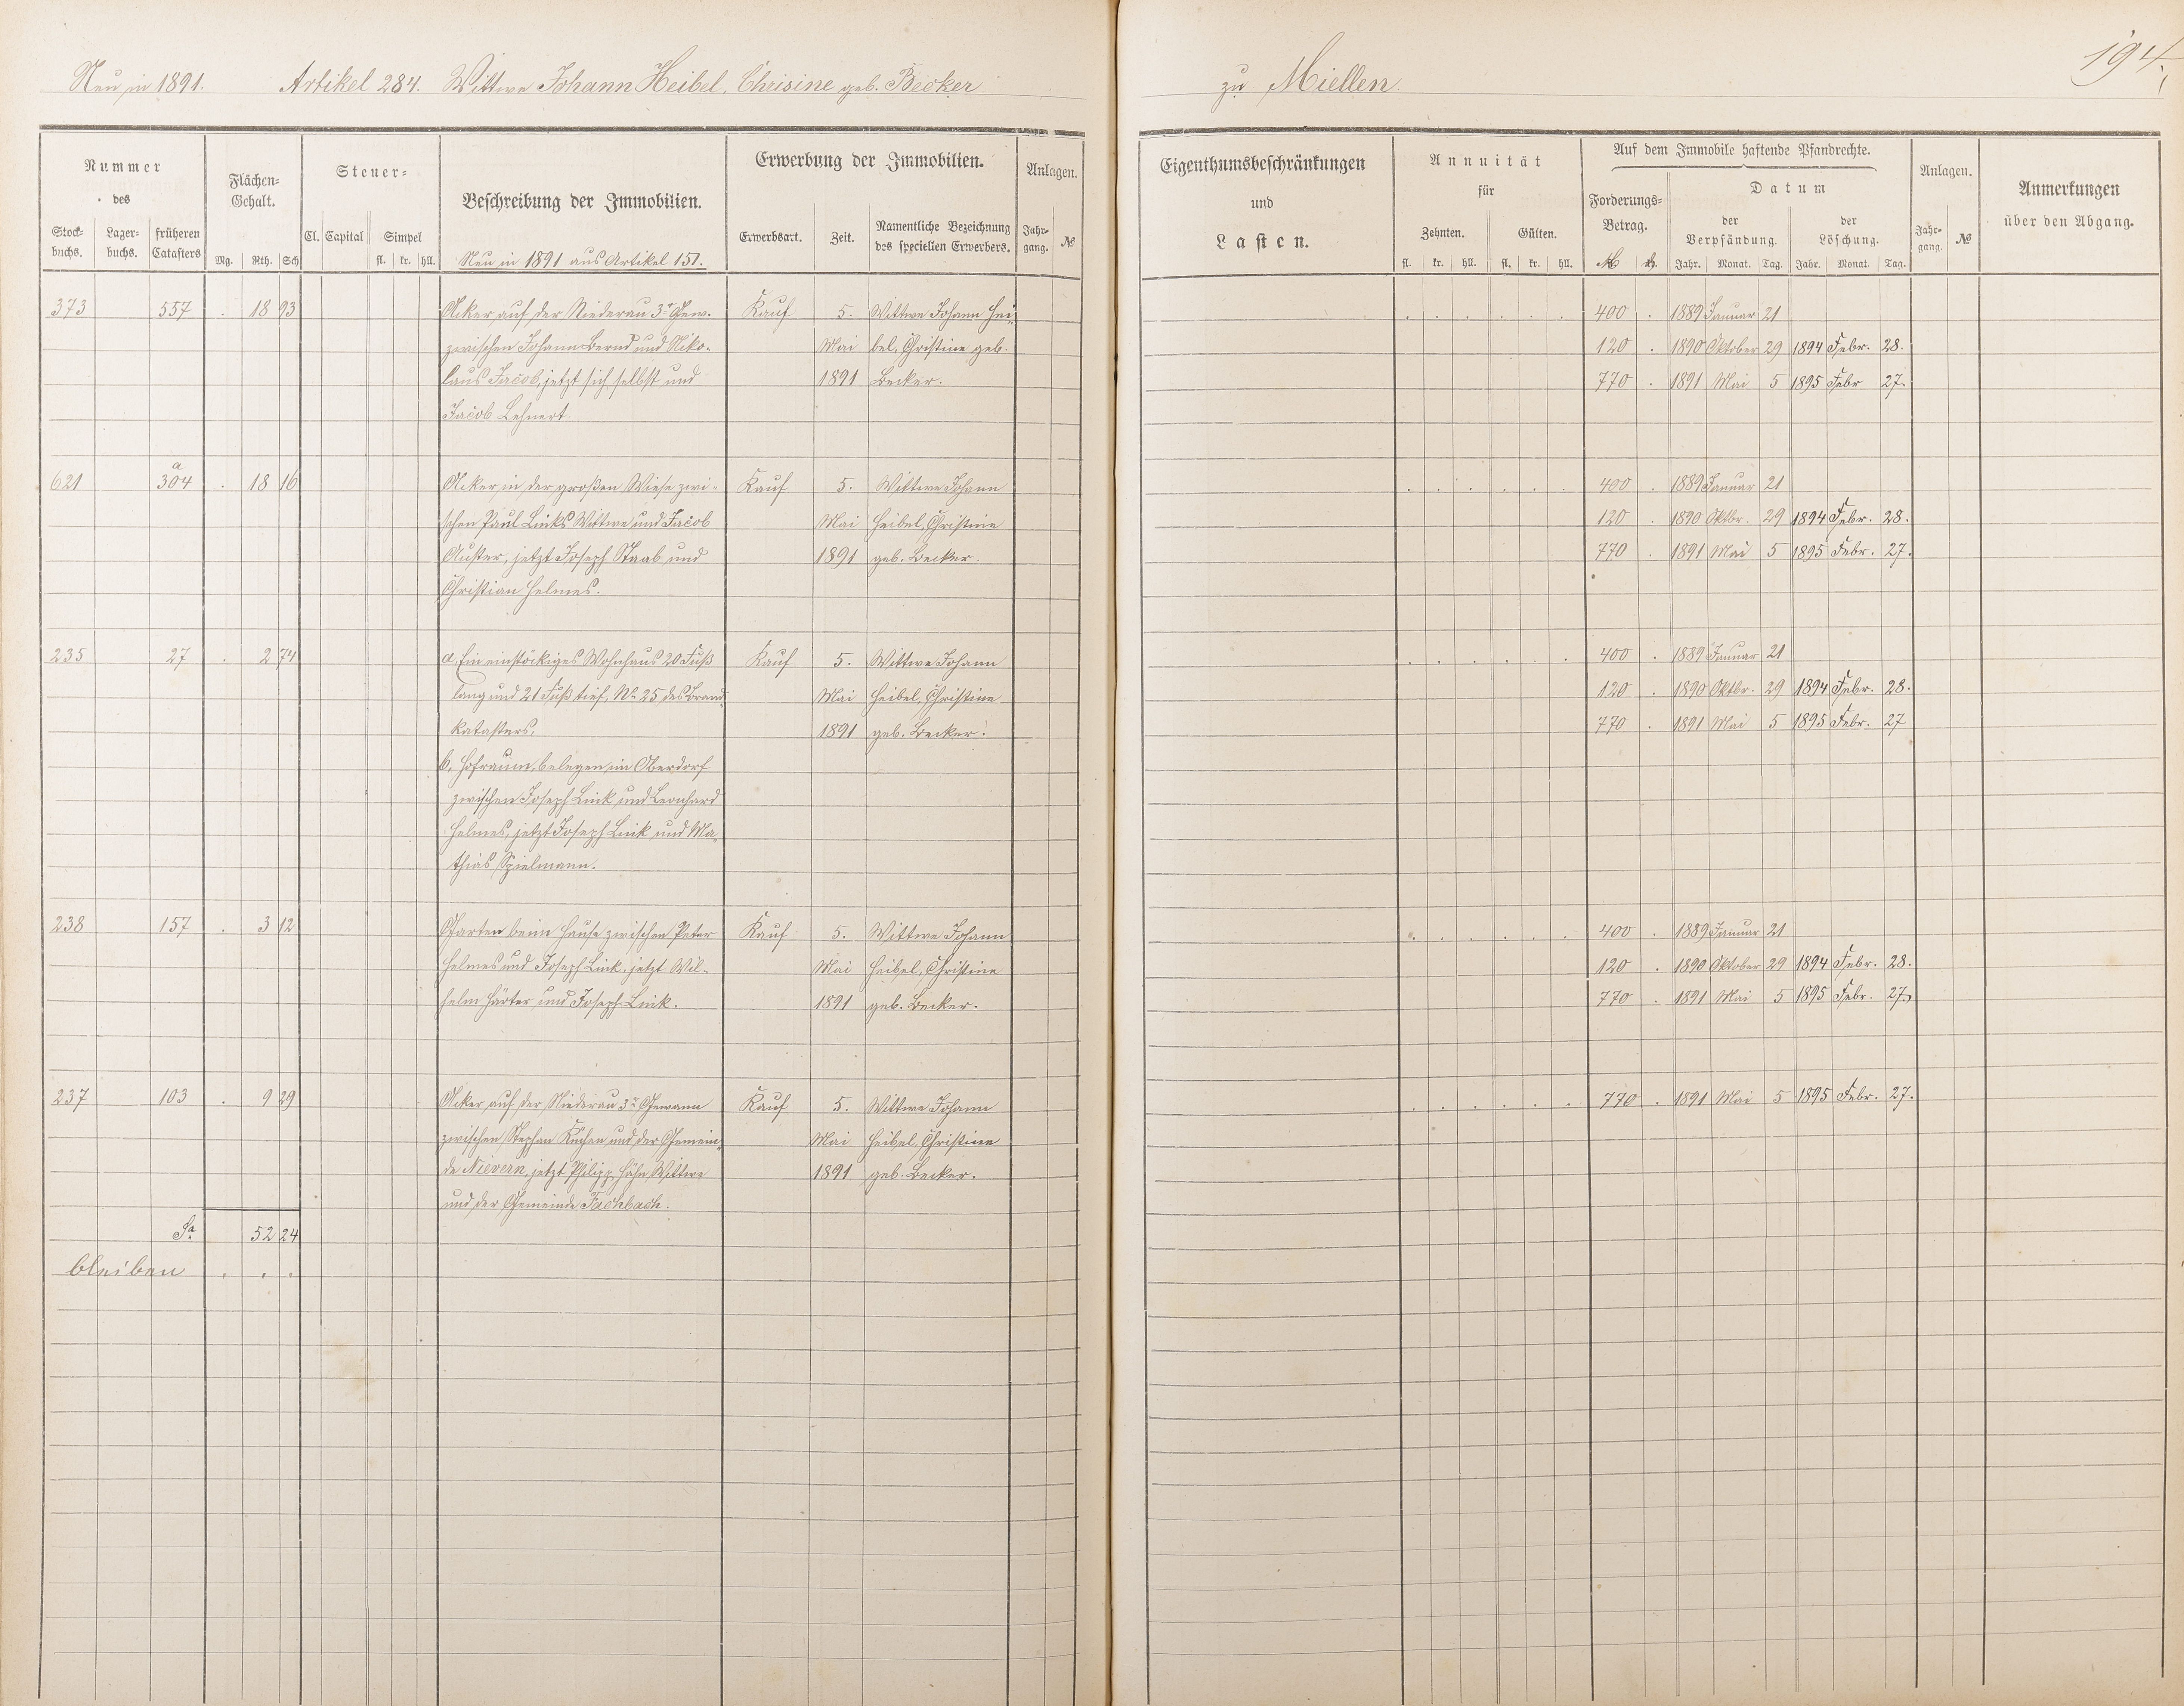 Neu in 1891. Artikel 284. Wittwe Johann Heibel, Chrisine geb. Becker
zu Miellen.
194.
Nummer
des
Stock-
buchs.
Lager-
buchs.
früheren
Catasters
Flächen-
Gehalt.
Mg. Rth. Sch
Steuer-
Cl. Capital Simpel
fl. kr. hll.
Beschreibung der Immobilien.
Neu in 1891 aus Artikel 151.
Erwerbung der Immobilien.
Erwerbsart. Zeit.
Namentliche Bezeichnung
des speciellen Erwerbers.
Anlagen.
Jahr-
gang.
№
Eigenthumsbeschränkungen
und
Lasten.
Annuität
für
Zehnten. Gülten.
fl. kr. hll. fl. kr. hll.
Auf dem Immobile haftende Pfandrechte.
Forderungs-
Betrag.
Datum
der
Verpfändung.
der
Löschung.
Jahr. Monat. Tag. Jahr. Monat. Tag.
Anlagen.
Jahr-
gang.
№
Anmerkungen
über den Abgang.
373 557 . 18 93 Acker auf der Niederau 3r Gew. Kauf 5. Wittwe Johann Hei- 400 . 1889 Januar 21
zwischen Johann Bernd und Niko- Mai bel, Christine geb. 120 . 1890 Oktober 29 1894 Febr. 28.
laus Jacob, jetzt sich selbst und 1891 Becker. 770 . 1891 Mai 5 1895 Febr 27.
Jacob Lehnert.
a
621 304 . 18 16 Acker in der großen Wiese zwi- Kauf 5. Wittwe Johann 400 . 1889 Januar 21
schen Paul Links Wittwe und Jacob Mai Heibel, Christine 120 . 1890 Oktbr. 29 1894 Febr. 28.
Auster, jetzt Joseph Staab und 1891 geb. Becker. 770 . 1891 Mai 5 1895 Febr. 27.
Christian Helmes.
235 27 . 2 74 a. Ein einstöckiges Wohnhaus 20 Fuß Kauf 5. Wittwe Johann 400 . 1889 Januar 21
lang und 21 Fuß tief, No 25 des Brand- Mai Heibel, Christine 120 . 1890 Oktbr. 29 1894 Febr. 28.
katasters, 1891 geb. Becker. 770 . 1891 Mai 5 1895 Febr. 27
b. Hofraum, belegen im Oberdorf
zwischen Joseph Link und Leonhard
Helmes, jetzt Joseph Link und Ma-
thias Spielmann.
238 157 . 3 12 Garten beim Hause zwischen Peter Kauf 5. Wittwe Johann 400 . 1889 Januar 21
Helmes und Joseph Link, jetzt Wil- Mai Heibel, Christine 120 . 1890 Oktober 29 1894 Febr. 28.
helm Härter und Joseph Link. 1891 geb. Becker. 770 . 1891 Mai 5 1895 Febr. 27.
237 103 . 9 29 Acker auf der Niederau 3r Gewann Kauf 5. Wittwe Johann 770 . 1891 Mai 5 1895 Febr. 27.
zwischen Stephan Kuchen und der Gemein- Mai Heibel Christine
de Nievern, jetzt Philipp Hahn Wittwe 1891 geb. Becker.
und der Gemeinde Fachbach.
Sa. 52 24
bleiben . . .